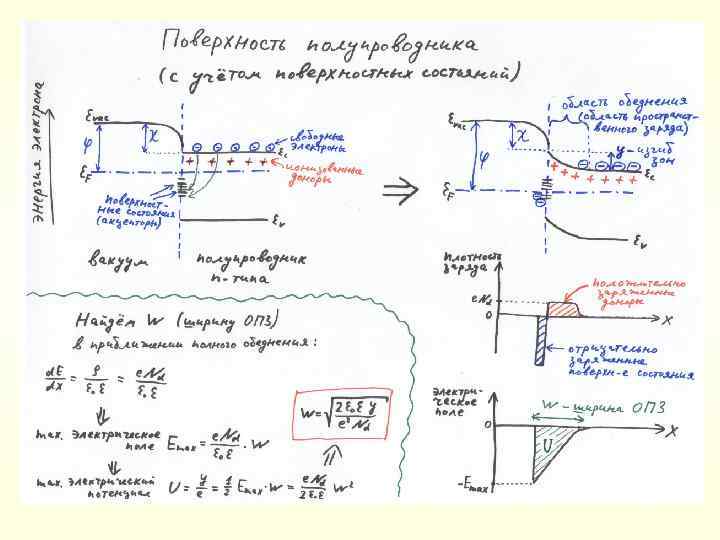 Поверхность полупроводника
(с учётом поверхностных состояний)
энергия электрона
Evac
φ
χ
свободные электроны
Ec
ионизованные доноры
EF
поверхност-
ные состояния
(акцепторы)
Ev
вакуум
полупроводник
n-типа
⇒
область обеднения
(область пространст-
венного заряда)
Evac
χ
φ
y - изгиб
зон
Ec
EF
Ev
плотность
заряда
eNd
0
x
положительно
заряженные
доноры
отрицательно
заряженные
поверхн-е состояния
электри-
ческое
поле
W - ширина ОПЗ
0
x
U
-Emax
Найдём W (ширину ОПЗ)
в приближении полного обеднения:
dE/dx = ρ/ε₀ε = eNd/ε₀ε
max. электрическое
поле Emax = eNd/ε₀ε · W
max. электрический
потенциал U = y/e = 1/2 Emax·W = eNd/2ε₀ε W²
W = √(2ε₀ε y/e² Nd)